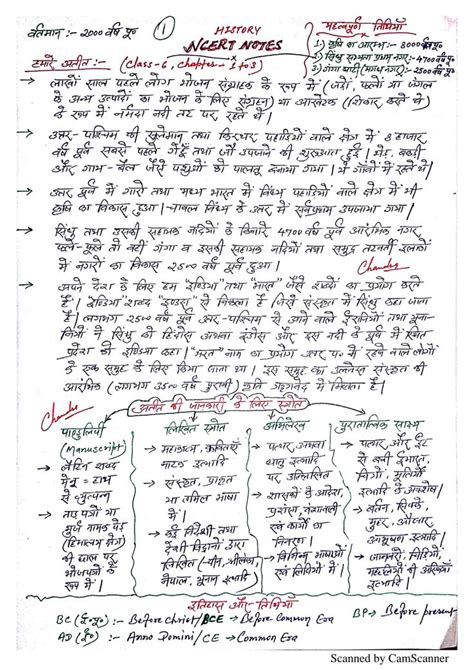 वर्तमान :- 2000 वर्ष पू०
1
HISTORY
NCERT NOTES
महत्वपूर्ण तिथियाँ
1.) कृषि का आरम्भ:- 8000 वर्ष पू०
2.) सिंधु सभ्यता प्रथम नगर:- 4700 वर्ष पू०
3.) गंगा घाटी (मगध नगर):- 2500 वर्ष पू०
हमारे अतीत :- (Class-6, Chapter - 1 to 3)
→ लाखों साल पहले लोग भोजन संग्राहक के रूप में (जड़ों, फलों या जंगल
के अन्य उत्पादों का भोजन के लिए संग्रहन) या आखेटक (शिकार करते थे)
के रूप में नर्मदा नदी तट पर रहते थे।
→ उत्तर-पश्चिम की सुलेमान तथा किरथर पहाड़ियों वाले क्षेत्र में 8 हजार
वर्ष पूर्व सबसे पहले गेहूँ तथा जौ उपजाने की शुरुआत हुई। भेड़, बकरी
और गाय-बैल जैसे पशुओं को पालतू बनाया गया। ये गाँवों में रहते थे।
→ उत्तर पूर्व में गारो तथा मध्य भारत में विंध्य पहाड़ियों वाले क्षेत्र में भी
कृषि का विकास हुआ। चावल विंध्य के उत्तर में सर्वप्रथम उपजाया गया।
→ सिंधु तथा उसकी सहायक नदियों के किनारे 4700 वर्ष पूर्व आरंभिक नगर
फले-फूले तो वहीं गंगा व इसकी सहायक नदियों तथा समुद्र तटवर्ती इलाकों
में नगरों का विकास 2500 वर्ष पूर्व हुआ।
Chandu
→ अपने देश के लिए हम "इण्डिया" तथा "भारत" जैसे शब्दों का प्रयोग करते
हैं। इण्डिया शब्द "इण्डस" से निकला है जिसे संस्कृत में सिंधु कहा जाता
है। लगभग 2500 वर्ष पूर्व उत्तर-पश्चिम से आने वाले ईरानियों तथा यूना-
नियों ने सिंधु को हिंदोस अथवा इंदोस और इस नदी के पूर्व में स्थित
प्रदेश को इण्डिया कहा। "भरत" नाम का प्रयोग उत्तर प० में रहने वाले लोगों
के एक समूह के लिए किया जाता था। इस समूह का उल्लेख संस्कृत की
आरंभिक (लगभग 3500 वर्ष पुरानी) कृति ऋग्वेद में मिलता है।
Chandu
अतीत की जानकारी के लिए स्त्रोत
पाण्डुलिपी
(Manuscript)
→ लैटिन शब्द
मेनू = हाथ
से व्युत्पन्न
→ ताड़ पत्रों या
भूर्ज नामक पेड़
(हिमालय क्षेत्र)
की छाल पर
भोजपत्रों के
रूप में।
लिखित स्त्रोत
→ महाकाव्य, कविताएँ
नाटक इत्यादि
→ संस्कृत, प्राकृत
या तमिल भाषा
में।
→ कई विदेशी तथा
देशी विद्वानों द्वारा
लिखित (चीन, श्रीलंका,
नेपाल, भूटान इत्यादि
अभिलेख
→ पत्थर, अथवा
धातु इत्यादि
पर उल्लिखित
→ शासकों के आदेश,
प्रशंसा, वंशावली
एवं कार्यों का
विवरण।
→ विभिन्न भाषाओं
एवं लिपियों
में।
पुरातात्विक साक्ष्य
→ पत्थर, और ईंट
से बनी ईमारत,
चित्रों, मूर्तियों
इत्यादि के अवशेष।
→ बर्तन, सिक्के,
मुहर, औजार,
आभूषण इत्यादि
→ जानवरों, चिड़ियों,
मछलियों की
हड्डियाँ इत्यादि
इतिहास और तिथियाँ
BC (ई०पू०) :- Before Christ / BCE → Before Common Era
BP → Before present
AD (ई०) :- Anno Domini / CE → Common Era
Scanned by CamScanner